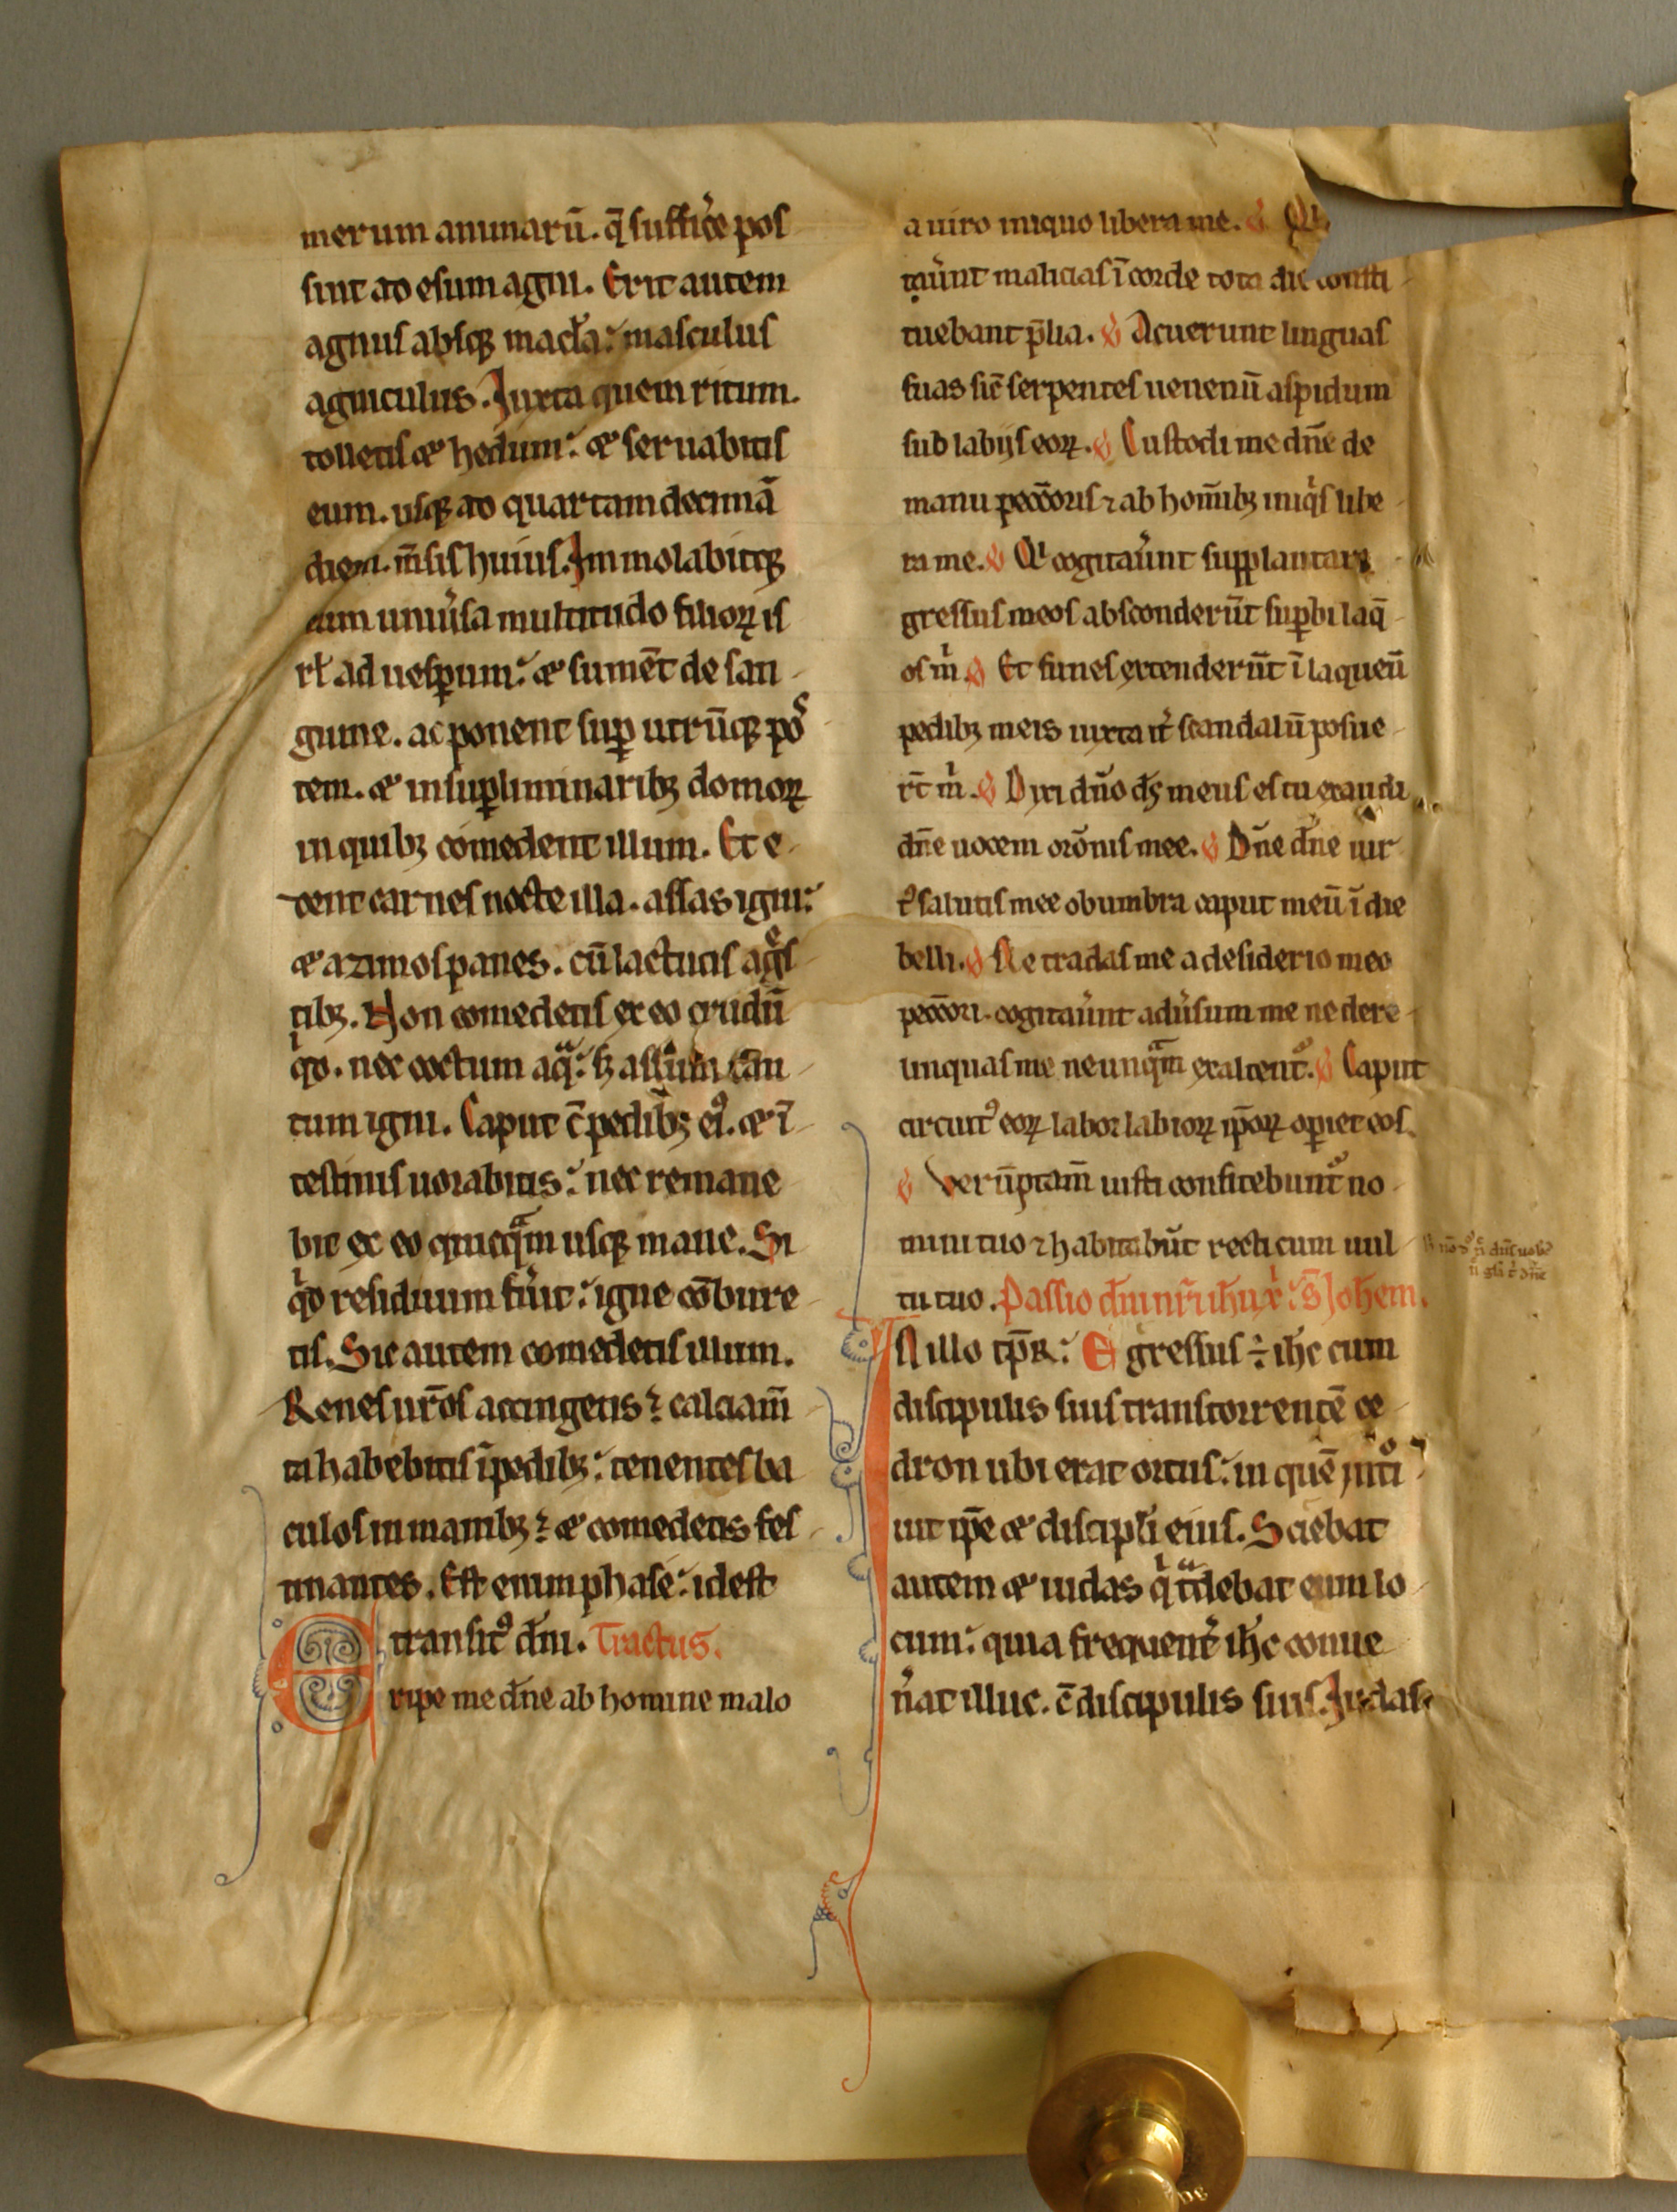 merum animarū. q̄ suffic̓e pos
sint ad esum agni. Erit autem
agnus absqꝫ macl̓a: masculus
agniculus. Iuxta quem ritum.
tolletis & hedum: & seruabitis
eum. usqꝫ ad quartamdecimā
diem. m̄sis huius. Immolabitqꝫ
eum uniu̓sa multitudo filioꝝ is
rł ad uesꝑum: & sument̄ de san
guine. ac ponent suꝑ utrūqꝫ pos
tem. & in suꝑliminaribꝫ domoꝝ
in quibꝫ comedent illum. Et e
dent carnes nocte illa. assas igni:
& azimos panes. cū lactucis ag̓s
tibꝫ. Non comedetis ex eo crudū
qͥd. nec coctum aqͣ: sꝫ assum tan
tum igni. Caput c̄ pedibꝫ eiꝰ. & ī
testinis uorabitis: nec remane
bit ex eo quicqͣm usqꝫ mane. Si
qͥd residuum fu̓it: igne cōbure
tis. Sic autem comedetis illum.
Renes ur̄os accingetis: calciam̄
ta habebitis ī pedibꝫ: tenentes ba
culos in manibꝫ: & comedetis fes
tinantes. Est enim phase: id est
transitꝰ dn̄i. Tractus.
Eripe me dn̄e ab homine malo
a uiro iniquo libera me. Qi
tau̓unt malicias ī corde tota die consti
tuebant p̄lia. Acuerunt linguas
suas sic̄ serpentes uenenū aspidum
sub labijs eoꝝ. Custodi me dn̄e de
manu peccatoris ⁊ ab hom̄ibꝫ iniqͥs libe
ra me. Qi cogitau̓unt supplantare
gressus meos absconderūt suꝑbi laq̄
os m̓. Et funes extenderūt ī laqueū
pedibꝫ meis iuxta it̓ scandalū posue
rt̄ m̓. Dixi dn̄o ds̄ meus es tu exaudi
dn̄e uocem orōnis mee. Dn̄e dn̄e uir
tꝰ salutis mee obumbra caput meū ī die
belli. Ne tradas me a desiderio meo
peccatori. cogitau̓unt adu̓sum me ne dere
linquas me ne unqͣm exaltentᷣ. Caput
circuitꝰ eoꝝ labor labioꝝ ip̄oꝝ oꝑiet eos.
Verūptam̄ iusti confitebuntᷣ no
mini tuo ⁊ habitabūt recti cum uul
tu tuo. Passio dn̄i nr̄i ih̄u xp̓i: s̄ Ioh̄em.
IN illo tp̄r̄: Egressus ÷ ih̄c cum
discipulis suis trans torrentē ce
dron ubi erat ortus: in quē int̓o
iuit ip̄e & discipl̓i eius. Sciebat
autem & iudas qͥ tͣdebat eum lo
cum: quia frequent̓ ih̄c conue
n̓at illuc. c̄ discipulis suis. Iudas